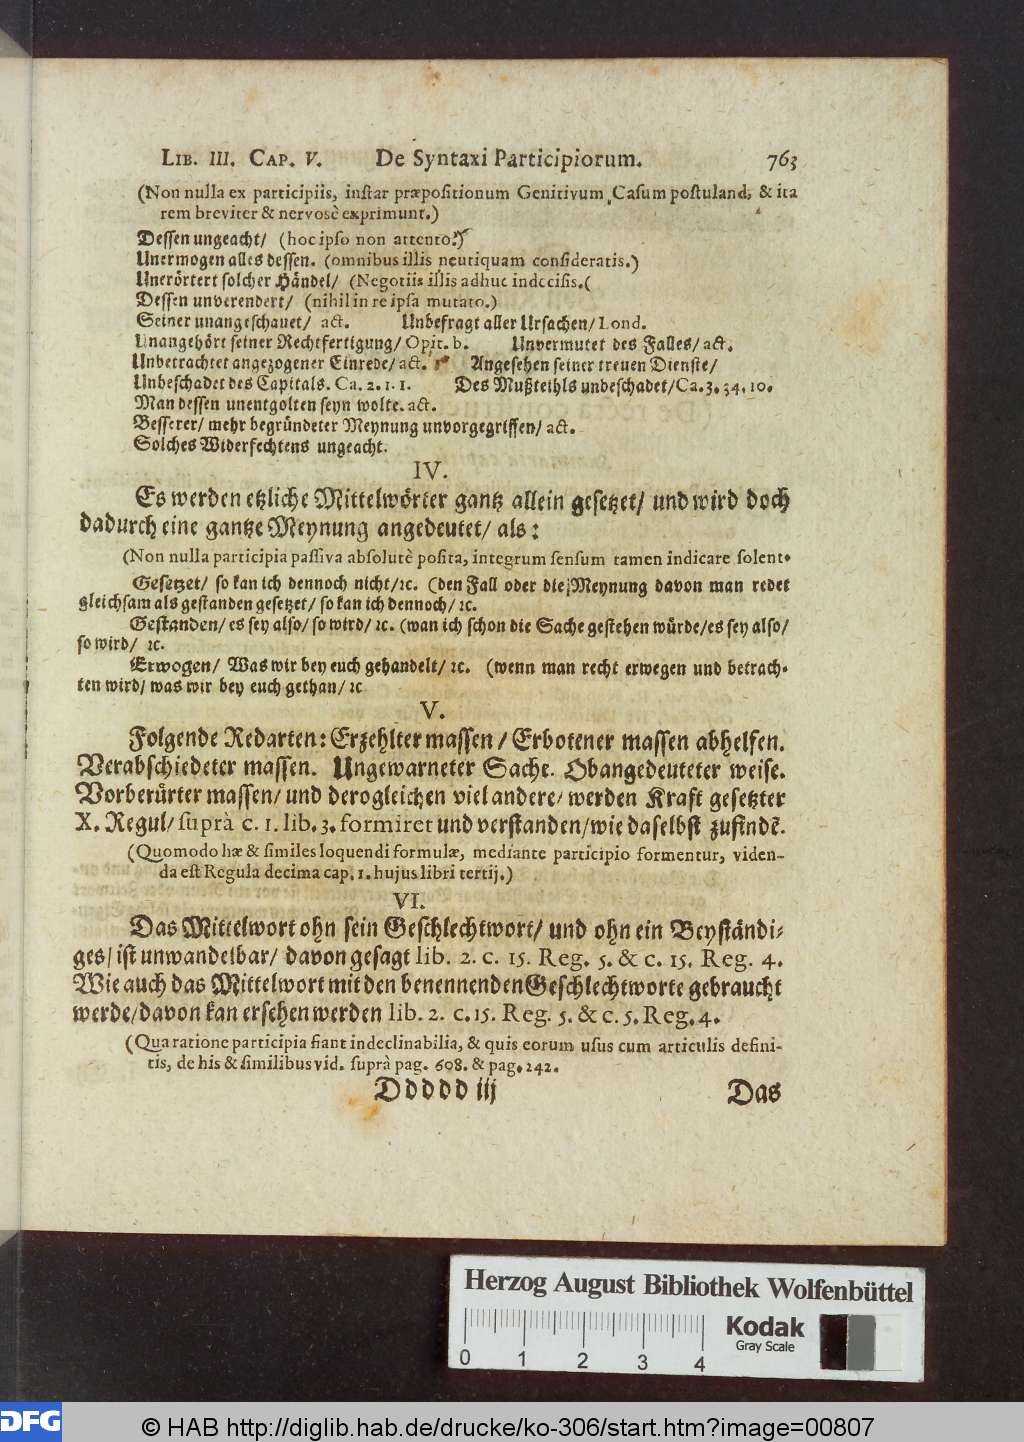 LIB. III. CAP. V. De Syntaxi Participiorum. 763
(Non nulla ex participiis, instar præpositionum Genitivum Casum postuland, & ita
rem breviter & nervosè exprimunt.)
Dessen ungeacht/ (hoc ipso non attento.)
Unermogen alles dessen. (omnibus illis neutiquam consideratis.)
Unerörtert solcher Händel/ (Negotiis illis adhuc indecisis.(
Dessen unverendert/ (nihil in re ipsa mutato.)
Seiner unangeschauet/ act. Unbefragt aller Ursachen/ Lond.
Unangehört seiner Rechtfertigung/ Opit. b. Unvermutet des Falles/ act.
Unbetrachtet angezogener Einrede/ act. Angesehen seiner treuen Dienste/
Unbeschadet des Capitals. Ca. 2. 1. 1. Des Mußteihls unbeschadet/ Ca. 3. 34. 10.
Man dessen unentgolten seyn wolte. act.
Besserer/ mehr begründeter Meynung unvorgegriffen/ act.
Solches Widerfechtens ungeacht.
IV.
Es werden etzliche Mittelwörter gantz allein gesetzet/ und wird doch
dadurch eine gantze Meynung angedeutet/ als:
(Non nulla participia passiva absolutè posita, integrum sensum tamen indicare solent.
Gesetzet/ so kan ich dennoch nicht/ ꝛc. (den Fall oder die Meynung davon man redet
gleichsam als gestanden gesetzet/ so kan ich dennoch/ ꝛc.
Gestanden/ es sey also/ so wird/ ꝛc. (wan ich schon die Sache gestehen würde/ es sey also/
so wird/ ꝛc.
Erwogen/ Was wir bey euch gehandelt/ ꝛc. (wenn man recht erwegen und betrach-
ten wird/ was wir bey euch gethan/ ꝛc
V.
Folgende Redarten: Erzehlter massen/ Erbotener massen abhelfen.
Verabschiedeter massen. Ungewarneter Sache. Obangedeuteter weise.
Vorberürter massen/ und derogleichen viel andere/ werden Kraft gesetzter
X. Regul/ suprà c. 1. lib. 3. formiret und verstanden/ wie daselbst zufindẽ.
(Quomodo hæ & similes loquendi formulæ, mediante participio formentur, viden-
da est Regula decima cap. 1. hujus libri tertij.)
VI.
Das Mittelwort ohn sein Geschlechtwort/ und ohn ein Beyständi-
ges/ ist unwandelbar/ davon gesagt lib. 2. c. 15. Reg. 5. & c. 15. Reg. 4.
Wie auch das Mittelwort mit den benennenden Geschlechtworte gebraucht
werde/ davon kan ersehen werden lib. 2. c. 15. Reg. 5. & c. 5. Reg. 4.
(Qua ratione participia fiant indeclinabilia, & quis eorum usus cum articulis defini-
tis, de his & similibus vid. suprà pag. 608. & pag. 242.
Ddddd iij Das
Herzog August Bibliothek Wolfenbüttel
Kodak
Gray Scale
0 1 2 3 4
DFG
© HAB http://diglib.hab.de/drucke/ko-306/start.htm?image=00807